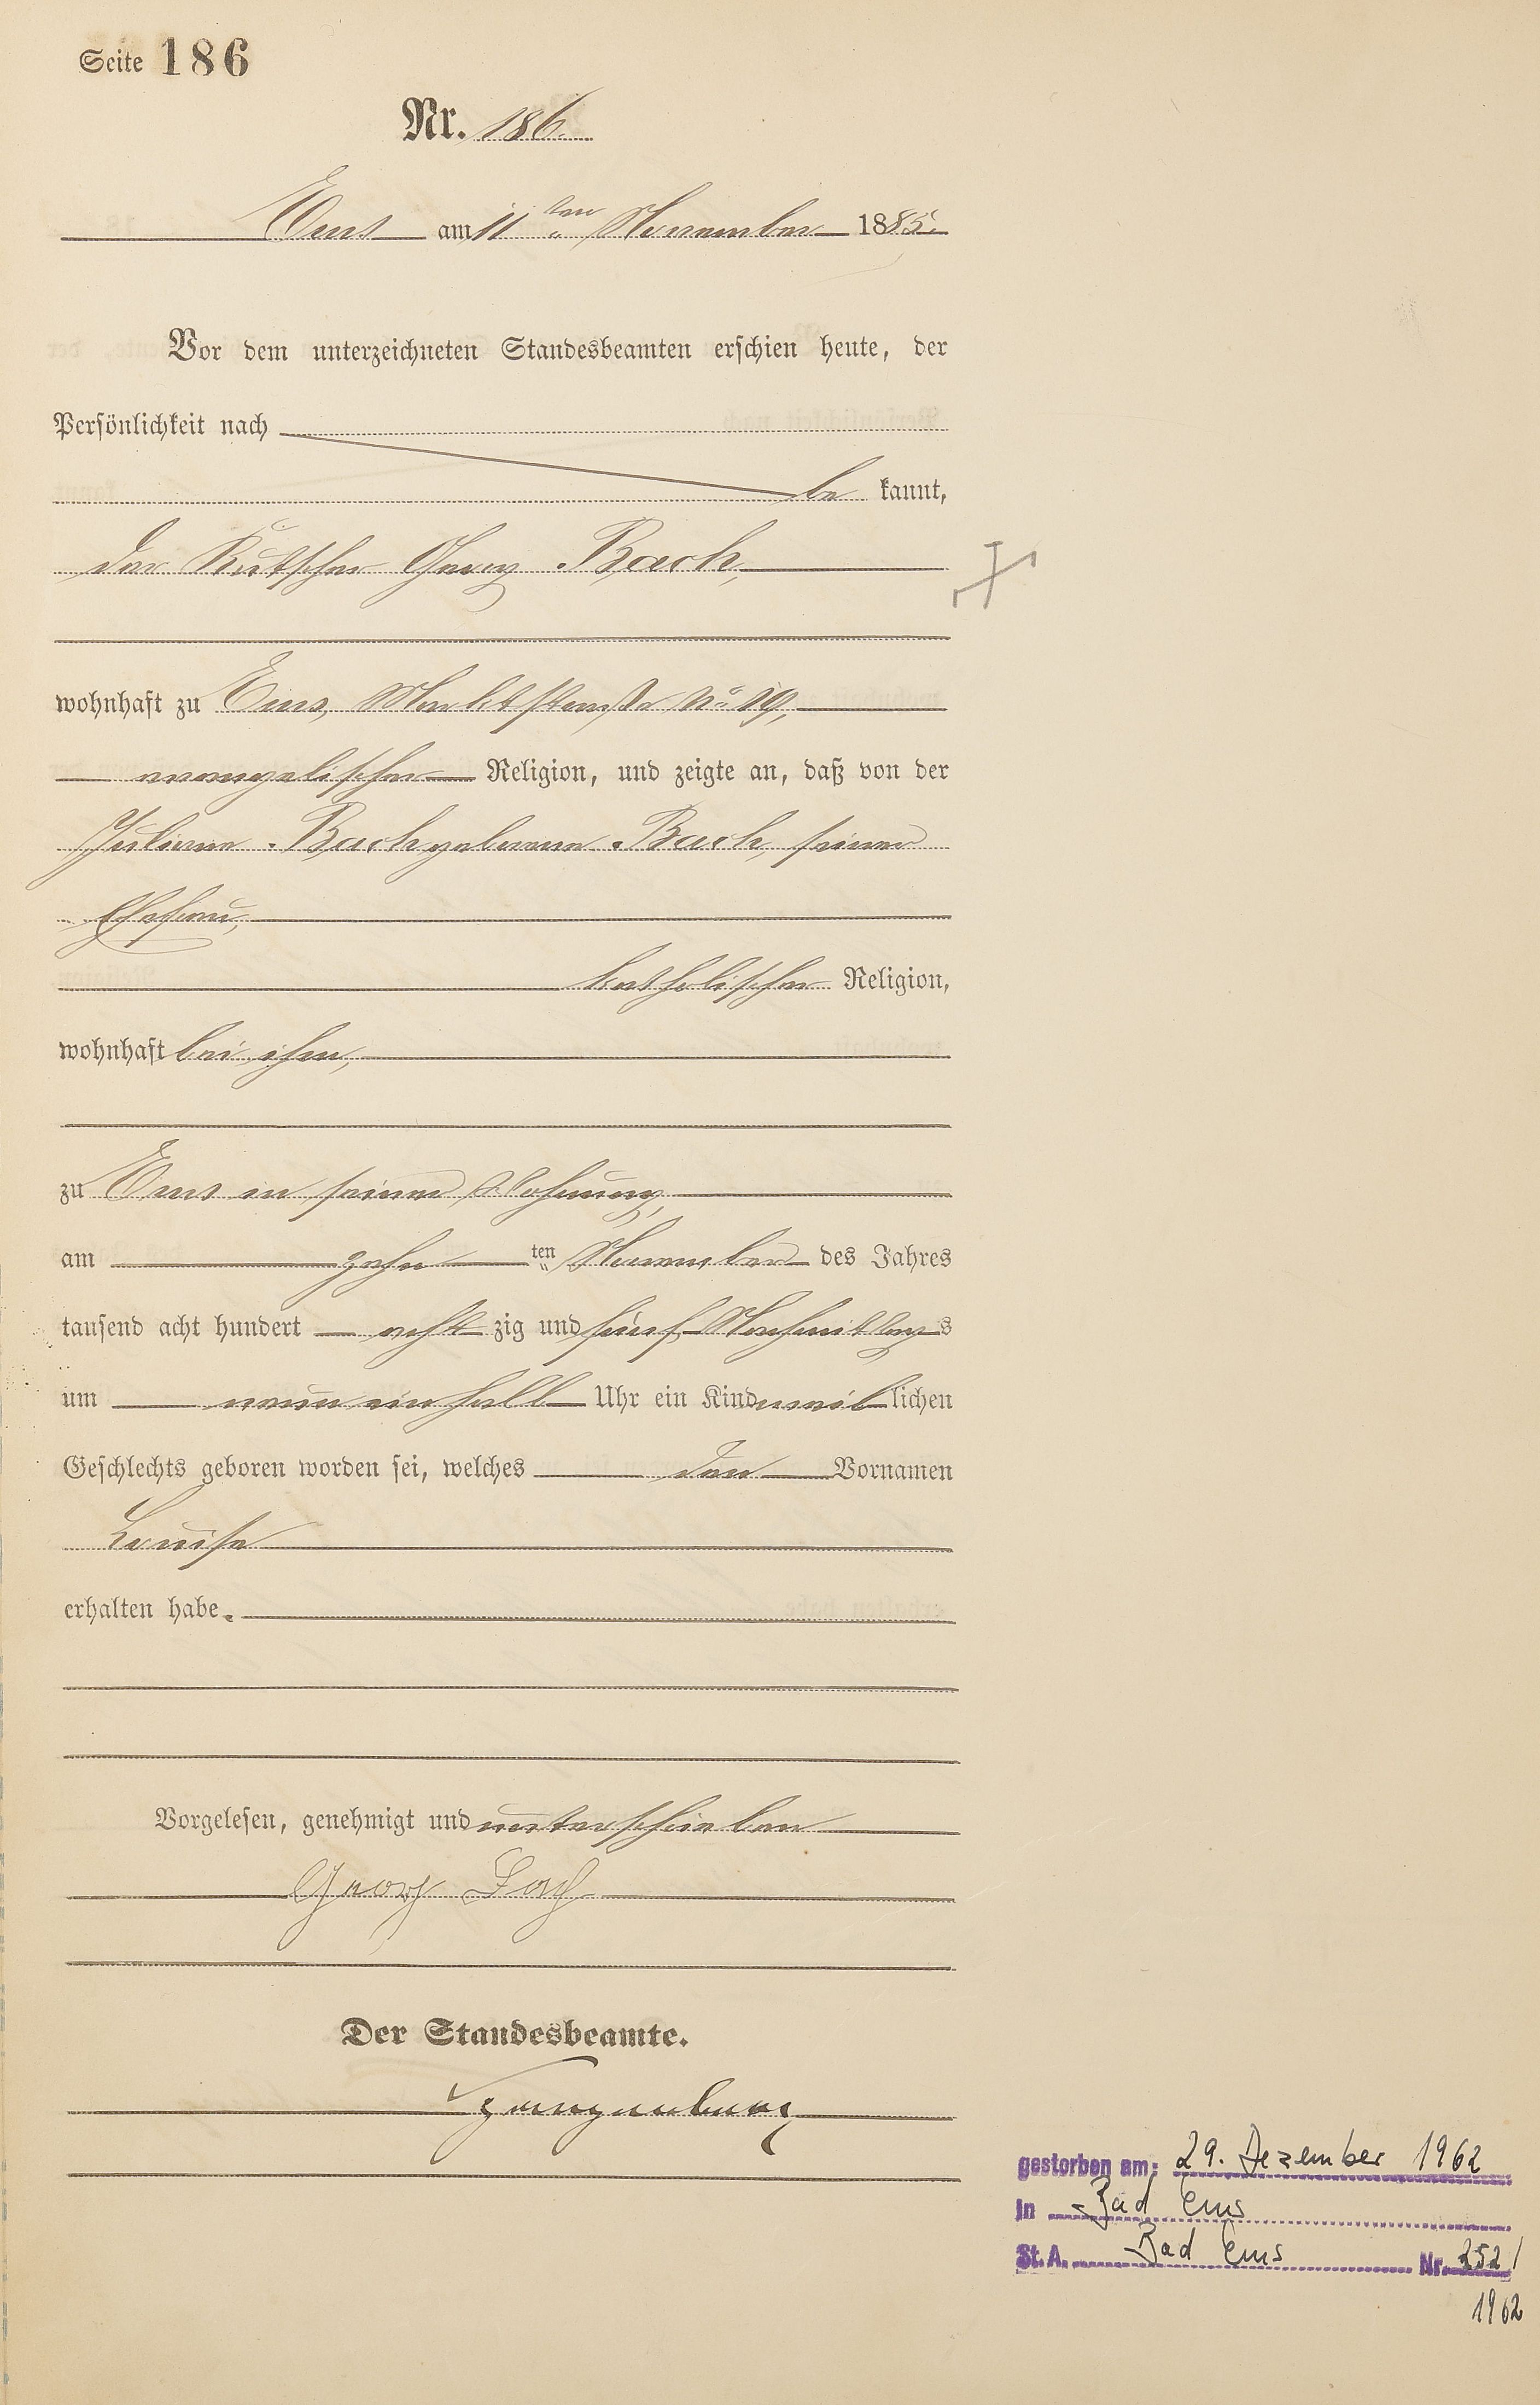 Seite 186
Nr. 186.
Ems am 11ten November 1885.
Vor dem unterzeichneten Standesbeamten erschien heute, der
Persönlichkeit nach
be kannt,
der Kutscher Georg Bach,
wohnhaft zu Ems, Marktstraße No 19,
evangelischer Religion, und zeigte an, daß von der
Juliane Bach geborene Bach, seiner
Ehefrau,
katholischer Religion,
wohnhaft bei ihm,
zu Ems in seiner Wohnung,
am zehn ten November des Jahres
tausend acht hundert acht zig und fünf Nachmittags
um neun ein halb Uhr ein Kind weib lichen
Geschlechts geboren worden sei, welches den Vornamen
Louise
erhalten habe.
Vorgelesen, genehmigt und unterschrieben
Georg Bach
Der Standesbeamte.
gestorben am: 29. Dezember 1962
in Bad Ems
St. A. Bad Ems Nr. 252/
1962